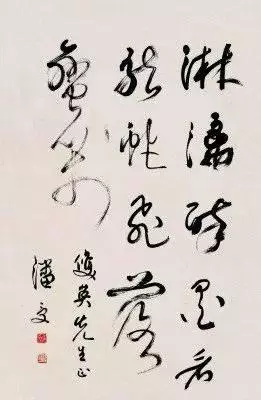 淋漓醉墨看
龍蛇飛落
蠻箋
英先生正
潘受